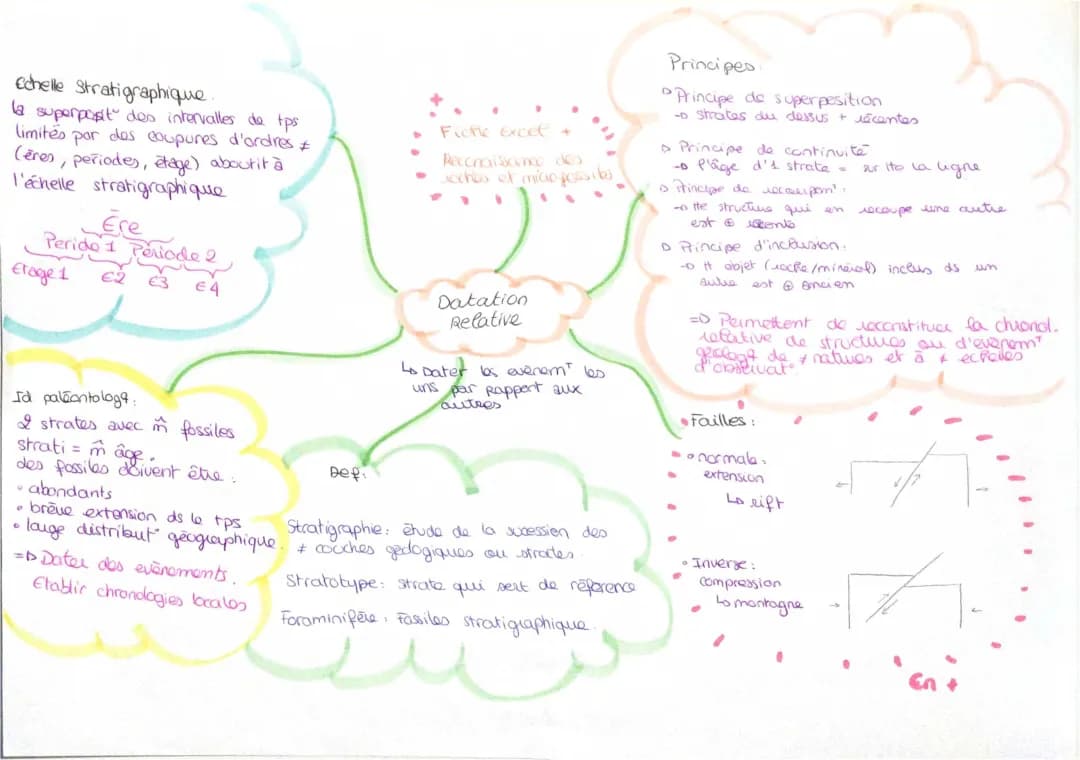 Echelle Stratigraphique.
la superposit° des intervalles de tps
limités par des coupures d'ordres ≠
(ères, périodes, étage) aboutit à
l'échelle stratigraphique
Ère
Période 1 Période 2
Etage 1 E2 E3 E4
+
Fiche Excel +
Reconaissance des
roches et microfossiles
Principes.
▷ Principe de superposition
→ strates du dessus + récentes
▷ Principe de continuité
→ l'âge d'1 strate = sur tte la ligne
▷ Principe de recoupemt.
→ tte structure qui en recoupe une autre
est ⊕ récente
▷ Principe d'inclusion.
→ tt objet (roche/minéral) inclus ds un
autre est ⊕ ancien
=> Permettent de reconstituer la chronol.
relative de structures ou d'évènemt
géologq de ≠ natures et à ≠ échelles
d'observat°
Datation
Relative
↳ Dater les évènemt les
uns par rapport aux
autres
Id paléontologq:
2 strates avec m̂ fossiles
strati = m̂ âge.
des fossiles doivent être:
• abondants
• brève extension ds le tps
• large distribut° géographique.
=> Dater des evènements.
Etablir chronologies locales
Def:
Stratigraphie: étude de la sucession des
≠ couches géologiques ou strates.
Stratotype: strate qui sert de référence
Foraminifère: Fossiles stratigraphique.
• Failles:
• normale:
extension
↳ rift
• Inverse:
compression
↳ montagne
En +